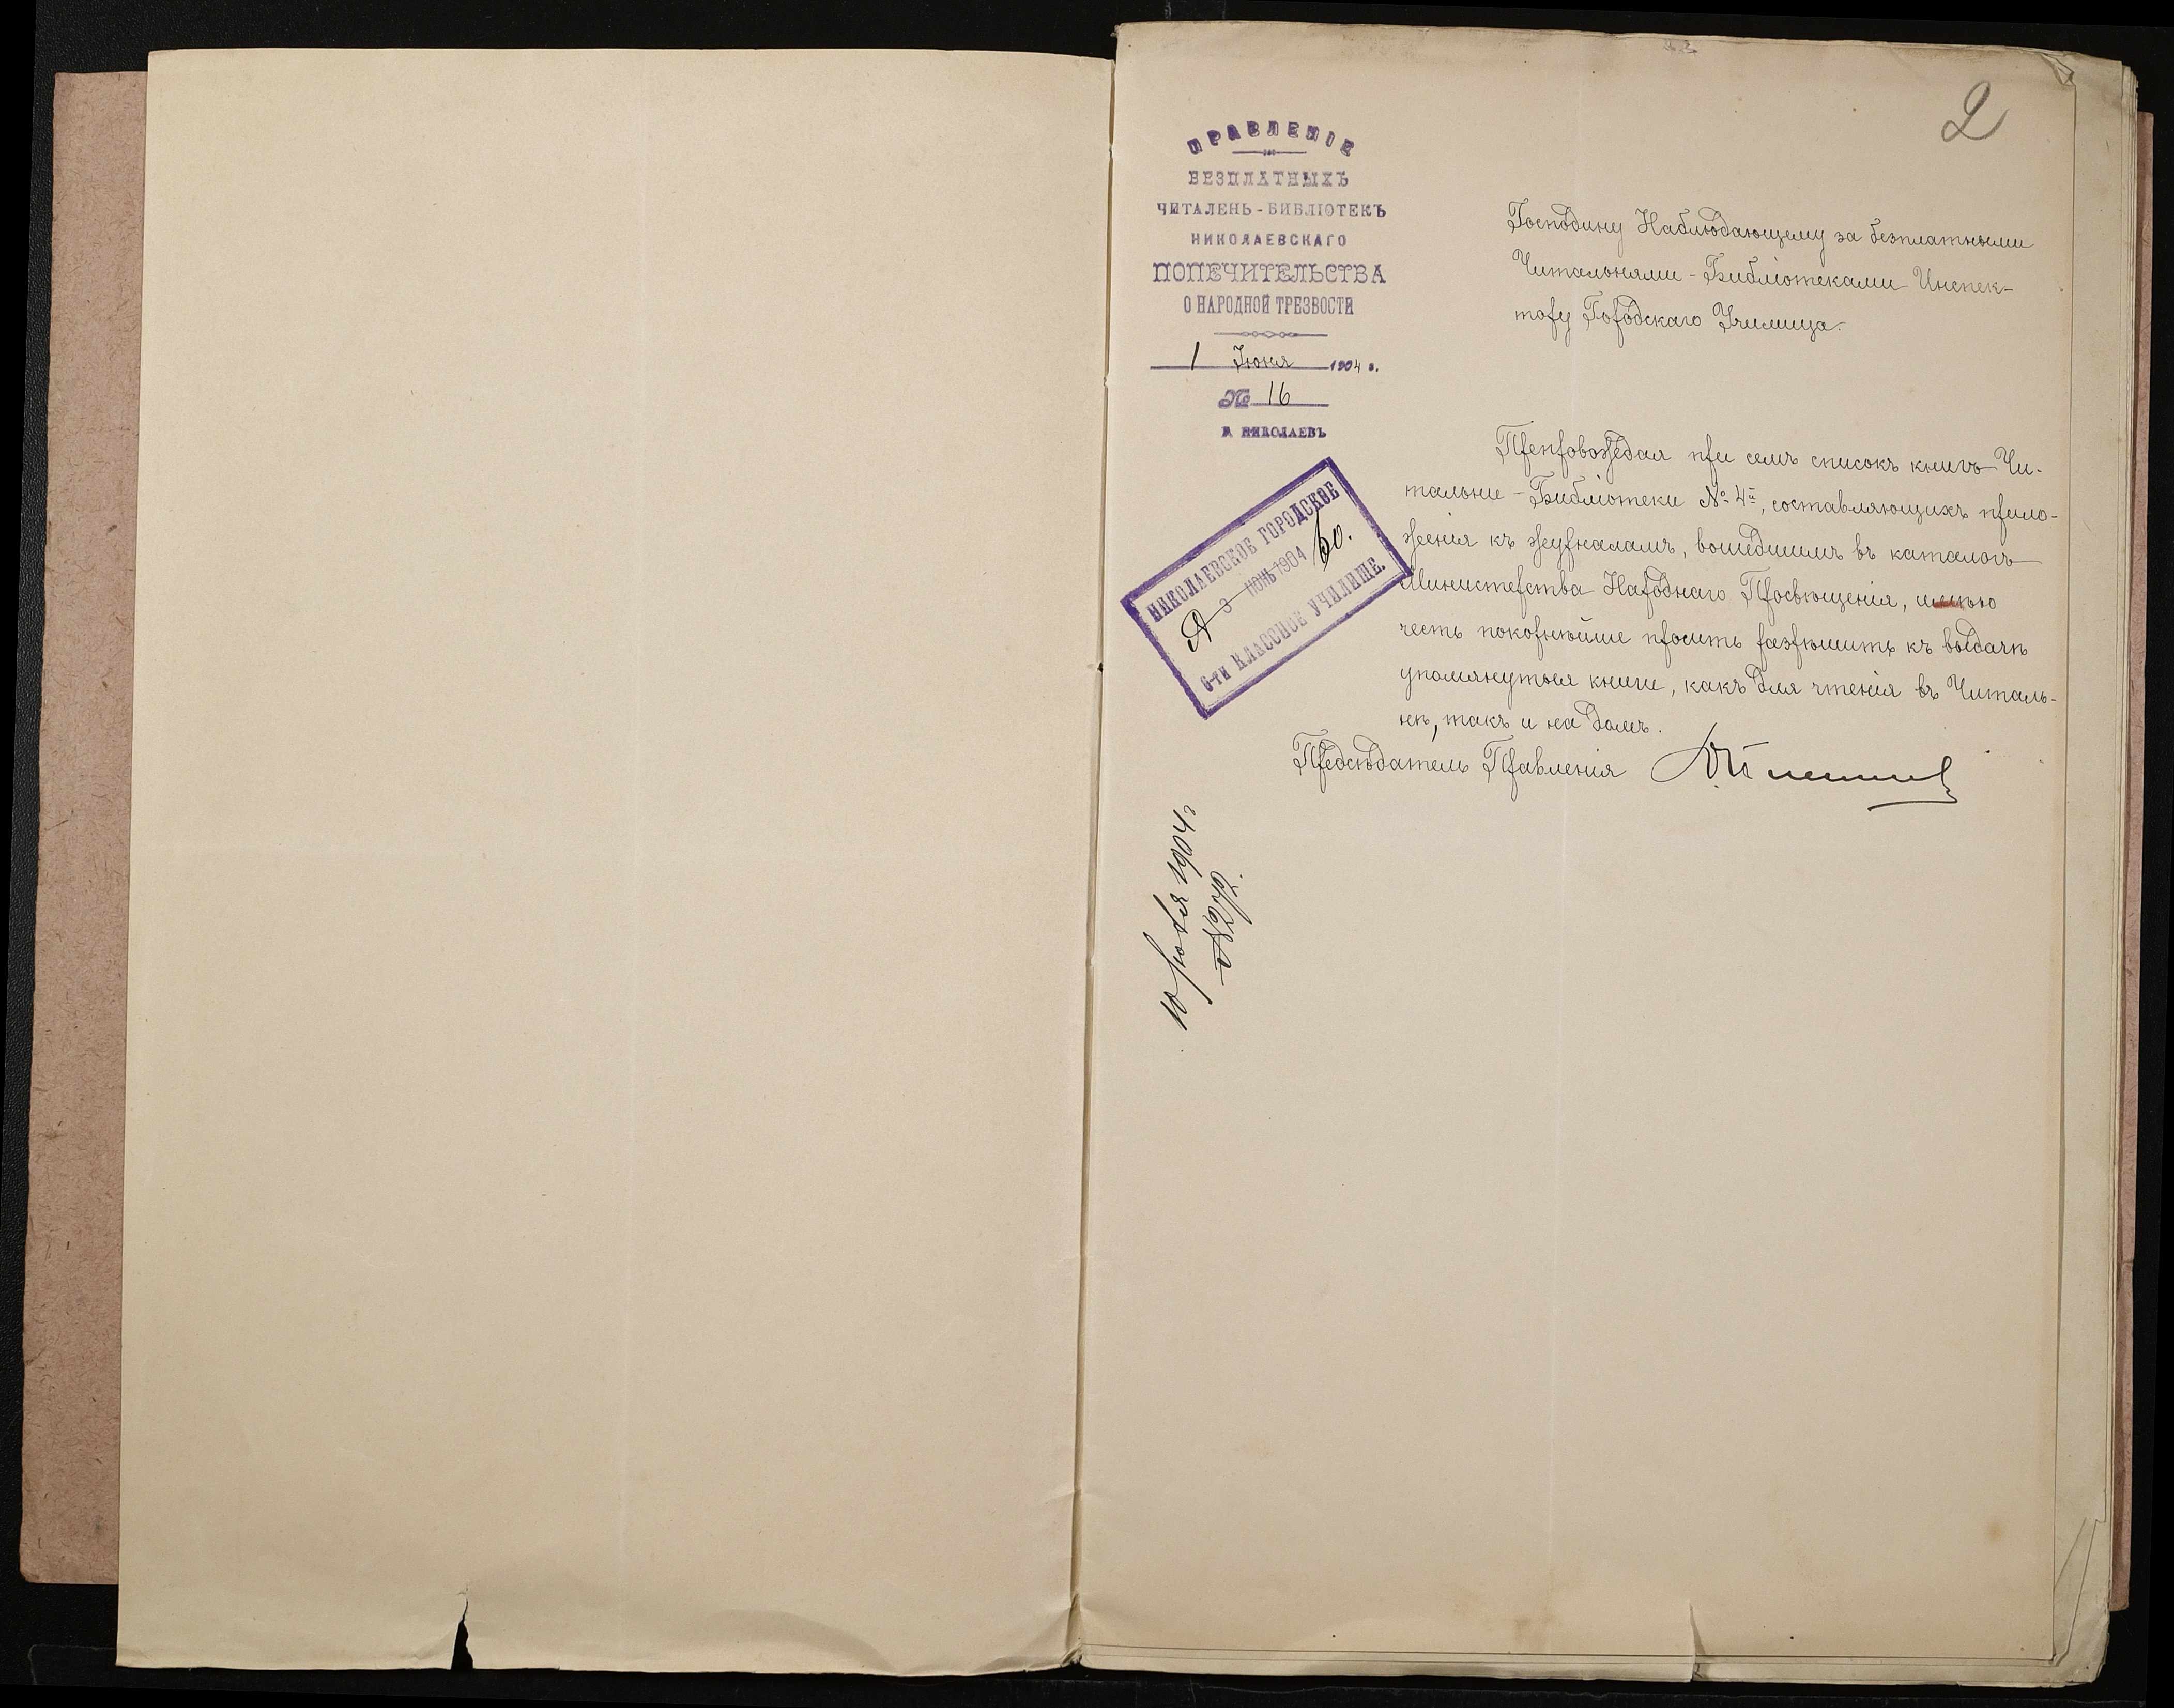 2
ПРАВЛЕНІЕ
БЕЗПЛАТНЫХЪ
ЧИТАЛЕНЬ-БИБЛІОТЕКЪ
НИКОЛАЕВСКАГО
ПОПЕЧИТЕЛЬСТВА
О НАРОДНОЙ ТРЕЗВОСТИ
1 Іюня 1904 г.
№ 16
Г. НИКОЛАЕВЪ
Господину Наблюдающему за безплатными
Читальнями-Библіотеками Инспек-
тору Городскаго Училища.
НИКОЛАЕВСКОЕ ГОРОДСКОЕ
3 ІЮНЬ 1904
6-ТИ КЛАССНОЕ УЧИЛИЩЕ.
Препровождая при семъ списокъ книгъ Чи-
тальни-Библіотеки № 4й, составляющихъ прило-
женія къ журналамъ, вошедшимъ въ каталогъ
Министерства Народнаго Просвѣщенія, имѣю
честь покорнѣйше просить разрѣшить къ выдачѣ
упомянутыя книги, какъ для чтенія въ Читаль-
нѣ, такъ и на домъ.
Предсѣдатель Правленія
10 1904 г.